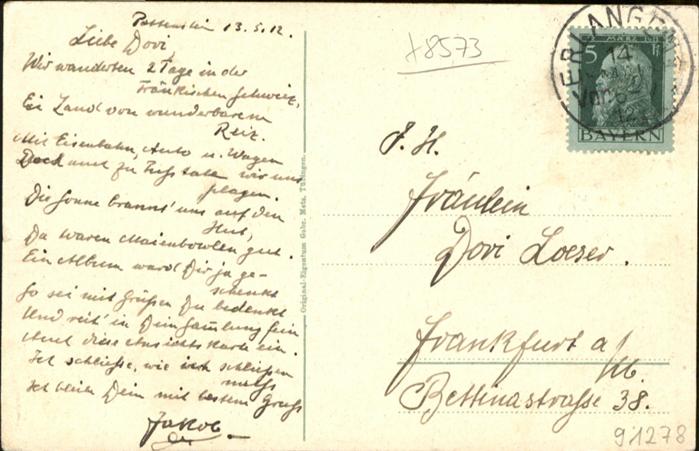 Pottenstein 13.5.12.
Liebe Dovi,
Wir wanderten 2 Tage in der
Fränkischen Schweiz,
Ein Land von wunderbarem
Reiz.
Mit Eisenbahn, Auto u. Wagen
Doch auch zu Fuss taten wir uns
plagen.
Die Sonne brannt' uns auf den
Hut,
Da waren Maienbowlen gut.
Ein Album ward Dir ja ge-
schenkt
So sei mit Grüßen Du bedenkt
Und reih' in Dein Sammlung fein
Auch diese Ansichtskarte ein.
Ich schließe, wie ich schliessen
muss
Ich bleib Dein mit bestem Gruss
Jakob
Original-Eigentum Gebr. Metz, Tübingen.
+8573
ERLANGEN
14
Vor
12
5 Pf
BAYERN
Fräulein
Dovi Loeser.
Frankfurt a/M.
Bettinastraße 38.
91278